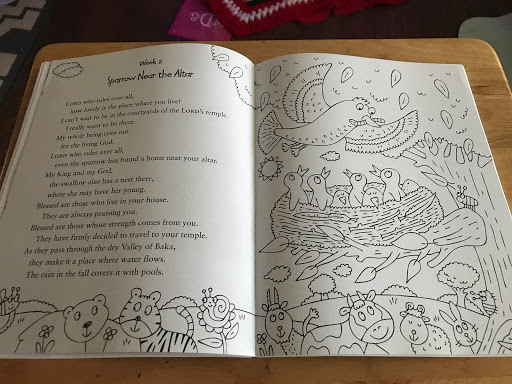 Week 2
Sparrow Near the Altar
LORD who rules over all,
how lovely is the place where you live!
I can't wait to be in the courtyards of the LORD's temple.
I really want to be there.
My whole being cries out
for the living God.
LORD who rules over all,
even the sparrow has found a home near your altar.
My King and my God,
the swallow also has a nest there,
where she may have her young.
Blessed are those who live in your house.
They are always praising you.
Blessed are those whose strength comes from you.
They have firmly decided to travel to your temple.
As they pass through the dry Valley of Baka,
they make it a place where water flows.
The rain in the fall covers it with pools.